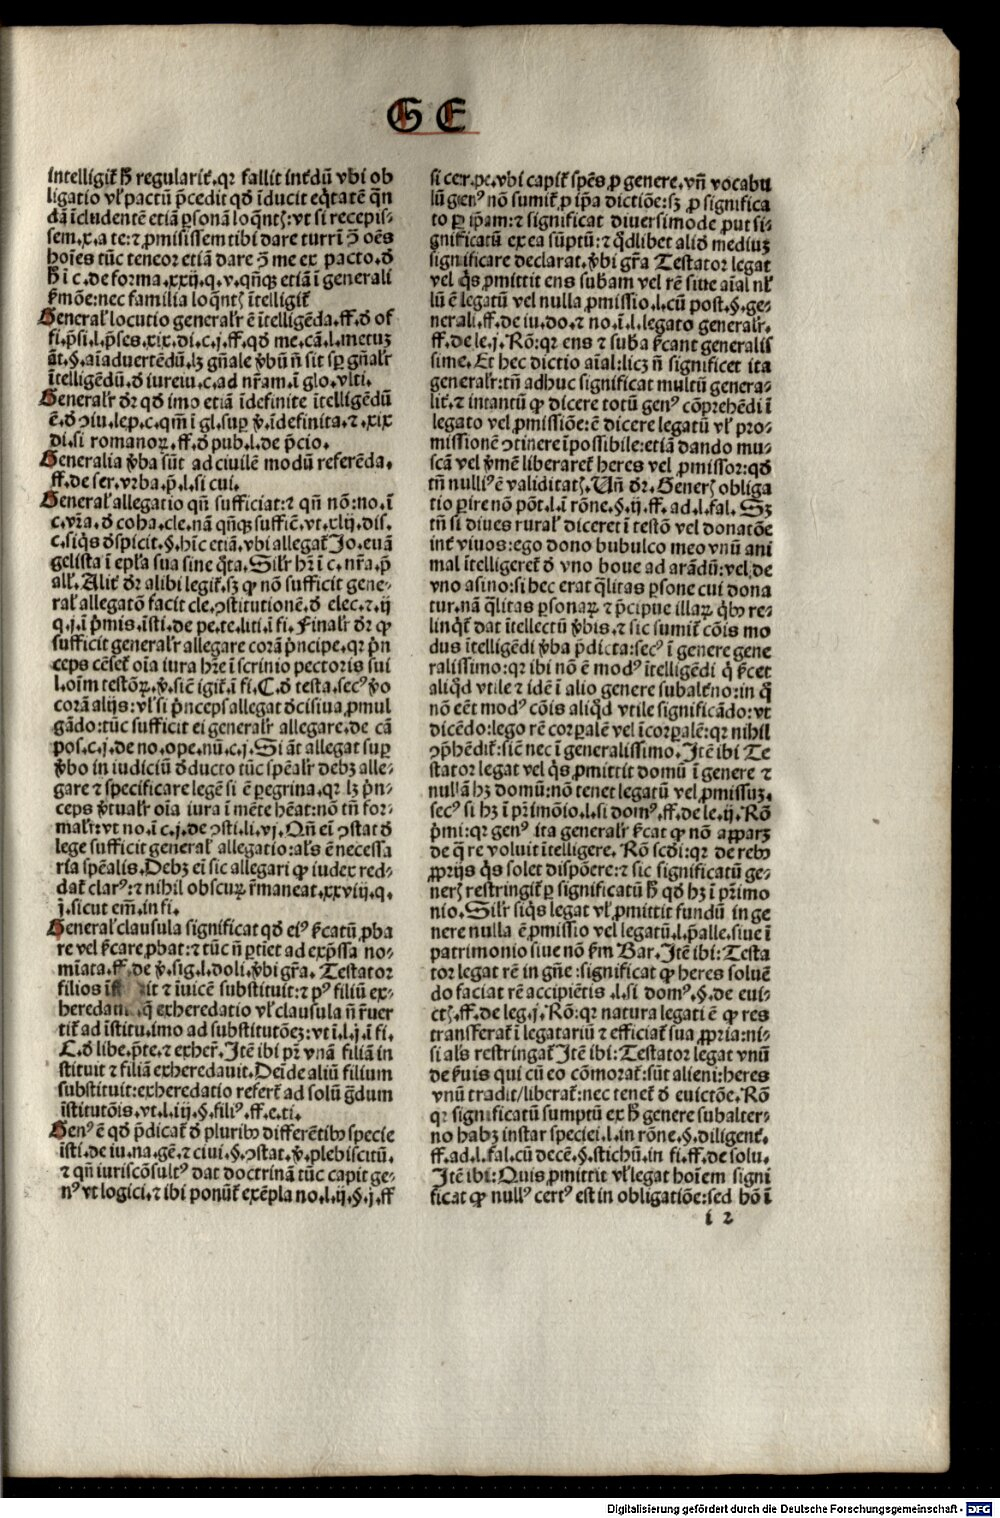 G E
intelligit̃ h̃ regularit̃.qꝛ fallit int̃dũ vbi ob
ligatio vl̕ pactũ p̃cedit qd̕ ĩducit eq̃tatẽ qñ
dã ĩcludentẽ etiã ꝑsonã loq̃ntꝭ:vt si recepis⸗
sem.x.a te:⁊ ꝓmisissem tibi dare turrĩ ꝯ̃ oẽs
hoĩes tũc teneor etiã dare ꝯ̃ me ex pacto.d̕
h̃ ĩ c.de forma.xxij.q.v.qñqꝫ etiã ĩ generali
ẜmõe:nec familia loq̃ntꝭ ĩtelligit̃
General̕ locutio generalr̕ ẽ ĩtelligẽda.ff.d̕ of
fi.p̃si.l.p̃ses.xix.di.c.j.ff.qd̕ me.cã.l.metuꝫ
ãt.§.aĩaduertẽdũ.lꝫ gñale v̕bũ ñ sit sꝑ gñalr̕
ĩtelligẽdũ.d̕ iureiu.c.ad nr̃am.ĩ glo.vlti.
Generalr̕ dr̃ qd̕ imo etiã ĩdefinite ĩtelligẽdũ
ẽ.d̕ ꝯiu.lep.c.qm̃ ĩ gl.suꝑ v̕.ĩdefinita.⁊.xix
di.si romanoꝝ.ff.d̕ pub.l.de p̃cio.
Generalia v̕ba sũt ad ciuilẽ modũ referẽda.
ff.de ser.vrba.p̃.l.si cui.
General̕ allegatio qñ sufficiat:⁊ qñ nõ:no.ĩ
c.vr̃a.d̕ coha.cle.nã qñqꝫ suffic̃.vt.xlij.dis.
c.siq̃s d̕spicit.§.hĩc etiã.vbi allegat̃ Jo.euã
gelista ĩ epl̃a sua sine q̃ta.Silr̕ hr̃ ĩ c.nr̃a.p̃
all̕.Alit̃ dr̃ alibi legit̃.sꝫ ꝙ nõ sufficit gene⸗
ral̕ allegatõ facit cle.ꝯstitutionẽ.d̕ elec.⁊.ij
q.j.ĩ p̃mis.ĩsti.de pe.te.liti.ĩ fi.Finalr̕ dr̃ ꝙ
sufficit generalr̕ allegare corã p̃ncipe.qꝛ p̃n
ceps cẽset̃ oĩa iura hr̃e ĩ scrinio pectoris sui
l.oĩm testõꝝ.v̕.sic̃ igit̃.ĩ fi.C.d̕ testa.sec⁹ v̕o
corã alijs:vl̕ si p̃nceps allegat d̕cisiua ꝓmul
gãdo:tũc sufficit ei generalr̕ allegare.de cã
pos.c.j.de no.ope.nũ.c.j.Si ãt allegat suꝑ
v̕bo in iudiciũ d̕ducto tũc spẽalr̕ debꝫ alle⸗
gare ⁊ specificare legẽ si ẽ ꝑegrina.qꝛ lꝫ p̃n⸗
ceps v̕tualr̕ oĩa iura ĩ mẽte hẽat:nõ tñ for⸗
malr̕:vt no.ĩ c.j.de ꝯsti.li.vj.Qñ eĩ ꝯstat d̕
lege sufficit general̕ allegatio:al̕s ẽ necessa
ria spẽalis.Debꝫ eĩ sic allegari ꝙ iudex red⸗
dat̃ clar⁹:⁊ nihil obscuꝝ r̃maneat.xxviij.q.
j.sicut em̃.in fi.
General̕ clausula significat qd̕ ei⁹ ẜcatũ ꝓba
re vel ẜcare ꝓbat:⁊ tũc ñ ꝑtiet ad exp̃ssa no⸗
mĩata.ff.de v̕.sig.l.doli.v̕bi gr̃a.Testator
filios ĩst it ⁊ ĩuicẽ substituit:⁊ p⁹ filiũ ex⸗
heredau q̃ exheredatio vl̕ clausula ñ r̃uer
tit̃ ad ĩstitu.imo ad substitutõeꝫ:vt ĩ.l.j.ĩ fi.
C.d̕ libe.p̃te.⁊ exher̃.Jtẽ ibi pr̃ vnã filiã in
stituit ⁊ filiã exheredauit.Deĩde aliũ filium
substituit:exheredatio refert̃ ad solũ g̃dum
ĩstitutõis.vt.l.iij.§.fili⁹.ff.e.ti.
Gen⁹ ẽ qd̕ p̃dicat̃ d̕ pluribꝰ differẽtibꝰ specie
ĩsti.de iu.na.gẽ.⁊ ciui.§.ꝯstat.v̕.plebiscitũ.
⁊ qñ iuriscõsult⁹ dat doctrinã tũc capit ge⸗
n⁹ vt logici.⁊ ibi ponũt̃ exẽpla no.l.ij.§.j.ff
si cer.pe.vbi capit̃ spẽs ꝓ genere.vñ vocabu
lũ gen⁹ nõ sumit̃ ꝓ ip̃a dictiõe:sꝫ ꝓ significa
to ꝑ ip̃am:⁊ significat diuersimode ꝓut si⸗
gnificatũ ex ea sũptũ:⁊ q̃dlibet aliud mediuꝫ
significare declarat.v̕bi gr̃a Testator legat
vel q̃s ꝓmittit ens subam vel rẽ siue aĩal nl̕
lũ ẽ legatũ vel nulla ꝓmissio.l.cũ post.§.ge⸗
nerali.ff.de iu.do.⁊ no.ĩ.l.legato generalr̕.
ff.de le.j.Rõ:qꝛ ens ⁊ suba ẜcant generalis
sime.Et hec dictio aĩal:licꝫ ñ significet ita
generalr̕:tñ adhuc significat multũ genera⸗
lit̃.⁊ intantũ ꝙ dicere totũ gen⁹ cõprehẽdi ĩ
legato vel ꝓmissiõe:ẽ dicere legatũ vl̕ pro⸗
missionẽ ꝯtinere ĩpossibile:etiã dando mu⸗
scã vel v̕mẽ liberaret̃ heres vel ꝓmissor:qd̕
tñ nulli⁹ ẽ validitatꝭ.Uñ dr̃.Generꝭ obliga
tio ꝑire nõ põt.l.ĩ rõne.§.ij.ff.ad.l.fal.Sꝫ
tñ si diues rural̕ diceret ĩ testõ vel donatõe
int̃ viuos:ego dono bubulco meo vnũ ani
mal ĩtelligeret̃ d̕ vno boue ad arãdũ:vel de
vno asino:si hec erat q̃litas ꝑsone cui dona
tur.nã q̃litas ꝑsonaꝝ ⁊ p̃cipue illaꝝ q̃bꝰ re⸗
linq̃t̃ dat ĩtellectũ v̕bis.⁊ sic sumit̃ cõis mo
dus ĩtelligẽdi v̕ba p̃dicta:sec⁹ ĩ genere gene
ralissimo:qꝛ ibi nõ ẽ mod⁹ ĩtelligẽdi q̃ ẜcet
aliq̃d vtile ⁊ idẽ ĩ alio genere subalt̃no:in q̃
nõ eẽt mod⁹ cõis aliq̃d vtile significãdo:vt
dicẽdo:lego rẽ corꝑalẽ vel ĩcorꝑalẽ:qꝛ nihil
ꝯp̃hẽdit̃:sic̃ nec ĩ generalissimo.Jtẽ ibi Te
stator legat vel q̃s ꝓmittit domũ ĩ genere ⁊
nullã hꝫ domũ:nõ tenet legatũ vel ꝓmissuꝫ.
sec⁹ si hꝫ ĩ p̃rimõio.l.si dom⁹.ff.de le.ij.Rõ
p̃mi:qꝛ gen⁹ ita generalr̕ ẜcat ꝙ nõ apparꝫ
de q̃ re voluit ĩtelligere.Rõ scd̕i:qꝛ de rebꝰ
ꝓprijs q̃s solet dispõere:⁊ sic significatũ ge⸗
nerꝭ restringit̃ ꝑ significatũ h̃ qd̕ hꝫ ĩ p̃rimo
nio.Silr̕ siq̃s legat vl̕ ꝓmittit fundũ in ge
nere nulla ẽ ꝓmissio vel legatũ.l.p̃alle.siue ĩ
patrimonio siue nõ ẜm Bar.Jtẽ ibi:Testa
tor legat rẽ in gñe:significat ꝙ heres soluẽ
do faciat rẽ accipiẽtis.l.si dom⁹.§.de eui⸗
ctꝭ.ff.de leg.j.Rõ:qꝛ natura legati ẽ ꝙ res
transferat̃ ĩ legatariũ ⁊ efficiat̃ sua ꝓpria:ni⸗
si al̕s restringat̃ Jtẽ ibi:Testator legat vnũ
de ẜuis qui cũ eo cõmorat̃:sũt alieni:heres
vnũ tradit/liberat̃:nec tenet̃ d̕ euictõe.Rõ
qꝛ significatũ sumptũ ex h̃ genere subalter⸗
no habꝫ instar speciei.l.in rõne.§.diligent̃.
ff.ad.l.fal.cũ decẽ.§.stichũ.in fi.ff.de solu.
Jtẽ ibi:Quis ꝓmittit vl̕ legat hoĩem signi
ficat ꝙ null⁹ cert⁹ est in obligatiõe:sed hõ ĩ
i 2
Digitalisierung gefördert durch die Deutsche Forschungsgemeinschaft - DFG